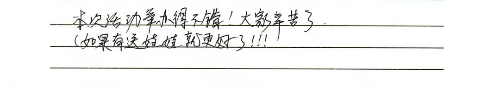 本次活动举办得不错！大家辛苦了.
(如果有送娃娃就更好了!!!